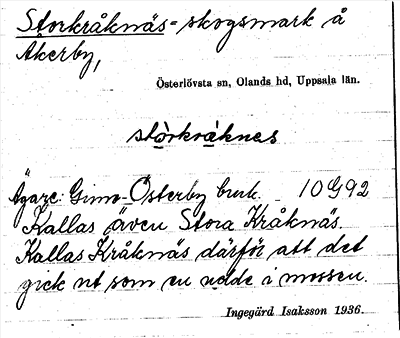 Storkråknäs=skogsmark å
Åkerby,
Österlövsta sn, Olands hd, Uppsala län.
stòrkràknes
Ägare: Gimo-Österby bruk. 10G92
Kallas även Stora Kråknäs.
Kallas Kråknäs därför att det
gick ut som en udde i mossen.
Ingegärd Isaksson 1936.